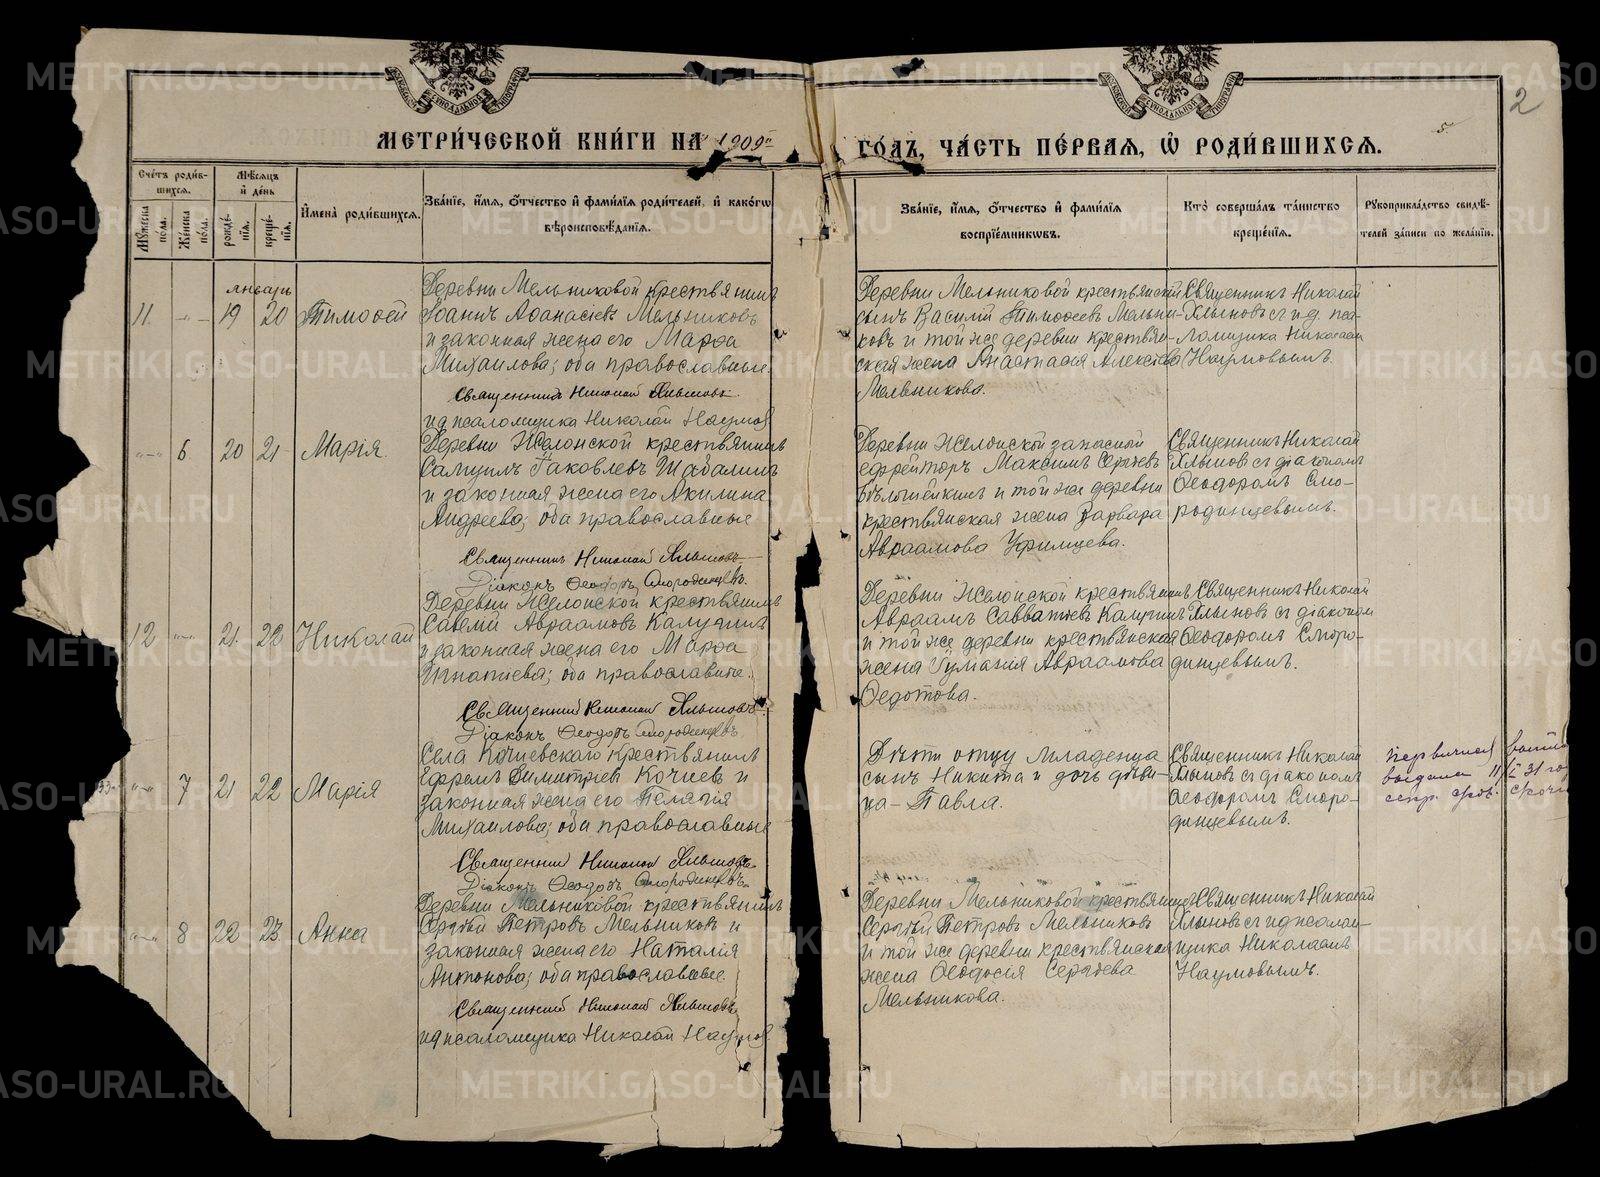 МЕТРИ́ЧЕСКОЙ КНИ́ГИ НА 1909й ГО́ДЪ, ЧА́СТЬ ПЕ́РВАЯ, Ѡ РОДИ́ВШИХСЯ.
5
2
Сче́тъ роди́вшихся.
Мѣ́сяцъ и́ де́нь
Му́жеска по́ла.
Же́нска по́ла.
рожде́нїя.
креще́нїя.
И҆мена̀ роди́вшихся.
Зва́нїе, и҆́мя, ѻ҆́тчество и҆ фами́лїя роди́телей, и҆ како́гѡ вѣроисповѣ́данїя.
Зва́нїе, и҆́мя, ѻ҆́тчество и҆ фами́лїя воспрїе́мникѡвъ.
Кто̀ соверша́лъ та́инство креще́нїя.
Рꙋкоприкла́дство свидѣ́телей за́писи по жела́нїю.
январь
11 19 20 Тимоѳей
Деревни Мельниковой крестьянинъ
Іоаннъ Аѳанасіевъ Мельниковъ
и законная жена его Марѳа
Михаилова; оба православные
Священникъ Николай Хлыновъ
и д псаломщика Николай Наумов
Деревни Мельниковой крестьянскій
сынъ Василій Тимоѳеевъ Мельни-
ковъ и той же деревни крестьян-
ская жена Анастасія Алексіева
Мельникова.
Священникъ Николай
Хлыновъ съ и.д. пса-
ломщика Николаем
Наумовымъ.
6 20 21 Марія.
Деревни Жслонской крестьянинъ
Іаковлевъ Шабалинъ
и законная жена его Акилина
Андреева; оба православные
Священникъ Николай Хлыновъ
Діаконъ Ѳеодоръ Смородинцевъ.
Деревни запасный
ефрейторъ Максимъ Сергѣевъ
и той же деревни
крестьянская жена Варвара
Авраамова Уфимцева.
Священникъ Николай
Хлыновъ съ діакономъ
Ѳеодоромъ Смо-
родинцевымъ.
12 21 22 Николай
Деревни крестьянинъ
Авраамовъ Калугинъ
и законная жена его Марѳа
Игнатіева; оба православные.
Священникъ Николай Хлыновъ
Діаконъ Ѳеодоръ Смородинцевъ
Деревни крестьянинъ
Авраамъ Савватіевъ Калугинъ
и той же деревни крестьянская
жена Авраамова
Ѳедотова.
Священникъ Николай
Хлыновъ съ діакономъ
Ѳеодоромъ Сморо-
динцевымъ.
7 21 22 Марія
Села Кочневскаго крестьянинъ
Ефремъ Димитріев Кочнев и
законная жена его Пелагія
Михаилова; оба православные
Священник Николай Хлыновъ
Діаконъ Ѳеодоръ Смородинцевъ
Дѣти отцу младенца
сынъ Никита и дочь дѣви-
ца - Павла.
Священникъ Николай
Хлыновъ съ діакономъ
Ѳеодоромъ Сморо-
динцевымъ.
8 22 23 Анна
Деревни Мельниковой крестьянинъ
Сергѣй Петровъ Мельниковъ и
законная жена его Наталія
Антонова; оба православные.
Священник Николай Хлыновъ
и д псаломщика Николай Наумов
Деревни Мельниковой крестьянинъ
Сергѣй Петровъ Мельниковъ
и той же деревни крестьянская
жена Ѳеодосія Сергѣева
Мельникова.
Священникъ Николай
Хлыновъ с и д псалом-
щика Николаемъ
Наумовымъ.
METRIKI.GASO-URAL.RU